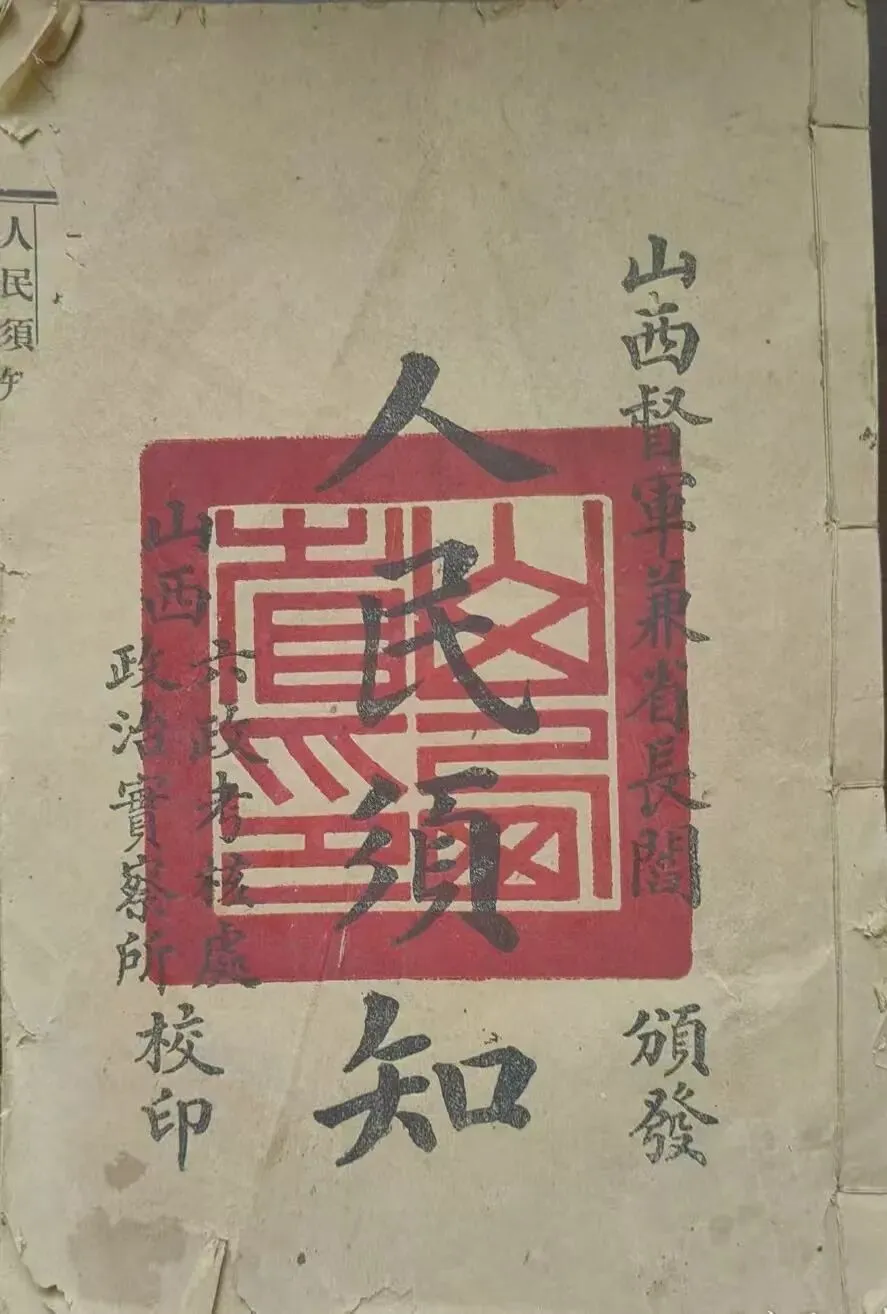 山西督軍兼省長閻 頒發
人民須知
山西
六政考核處
政治實察所
校印
人民須